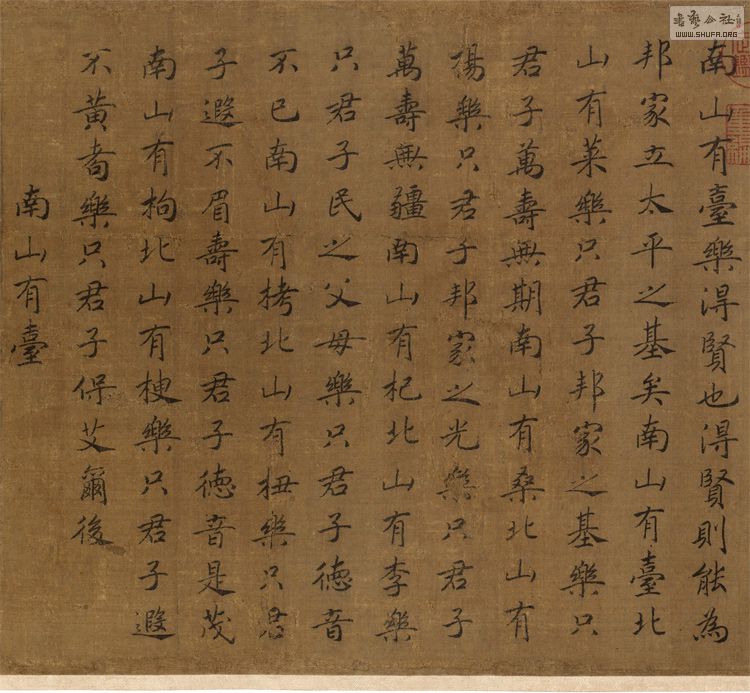 南山有臺樂得賢也得賢則能為
邦家立太平之基矣南山有臺北
山有萊樂只君子邦家之基樂只
君子萬壽無期南山有桑北山有
楊樂只君子邦家之光樂只君子
萬壽無疆南山有杞北山有李樂
只君子民之父母樂只君子德音
不已南山有栲北山有杻樂只君
子遐不眉壽樂只君子德音是茂
南山有枸北山有楰樂只君子遐
不黃耇樂只君子保艾爾後
南山有臺
WWW.SHUFA.ORG